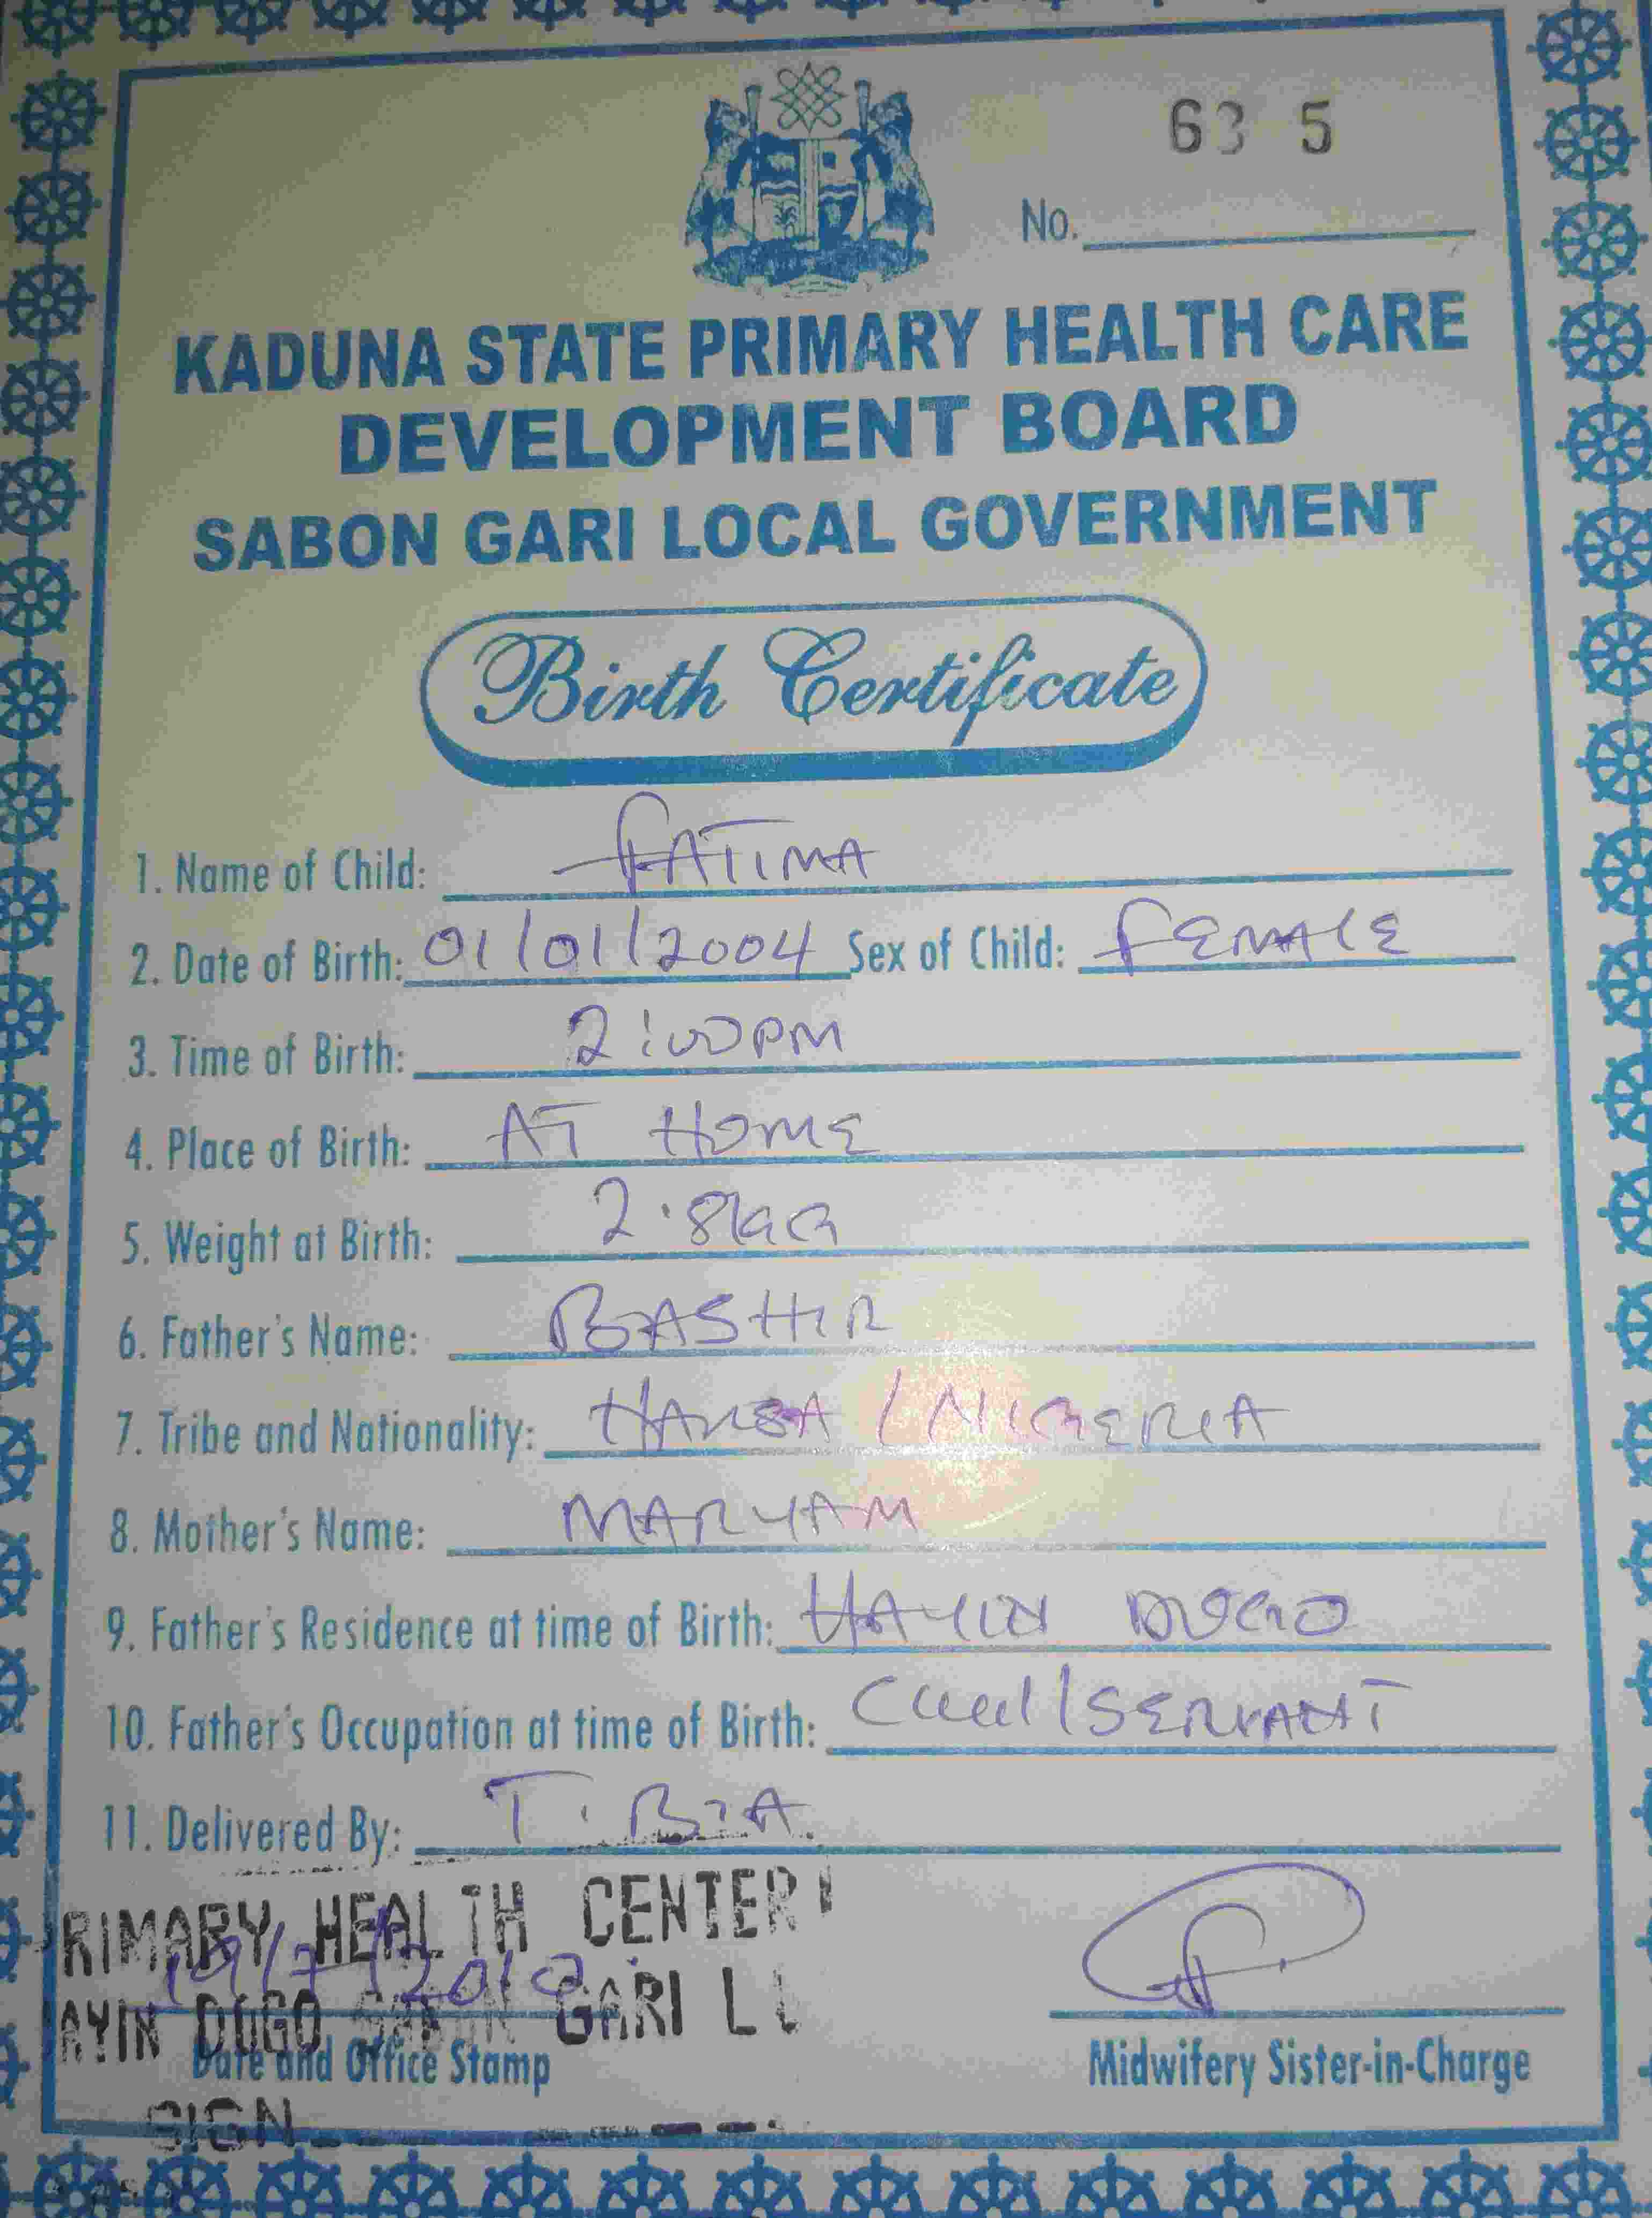 63 5
No.
KADUNA STATE PRIMARY HEALTH CARE
DEVELOPMENT BOARD
SABON GARI LOCAL GOVERNMENT
Birth Certificate
1. Name of Child: FATIMA
2. Date of Birth: 01/01/2004 Sex of Child: FEMALE
3. Time of Birth: 2:00PM
4. Place of Birth: AT HOME
5. Weight at Birth: 2.8kg
6. Father's Name: BASHIR
7. Tribe and Nationality: HAUSA / NIGERIA
8. Mother's Name: MARYAM
9. Father's Residence at time of Birth: HAYIN DOGO
10. Father's Occupation at time of Birth: Civil/SERVANT
11. Delivered By: T.B.A
RIMARY HEALTH CENTER
AYIN DOGO SABON GARI L
Date and Office Stamp
Midwifery Sister-in-Charge
SIGN